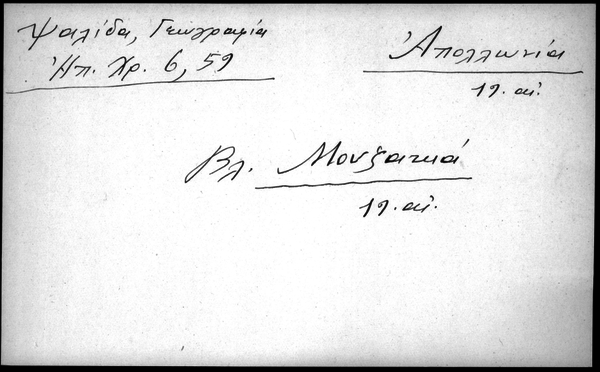 Ψαλίδα, Γεωγραφία
Ἠπ. Χρ. 6, 59
Ἀπολλωνία
19. αἰ.
Βλ. Μουζακιά
19. αἰ.